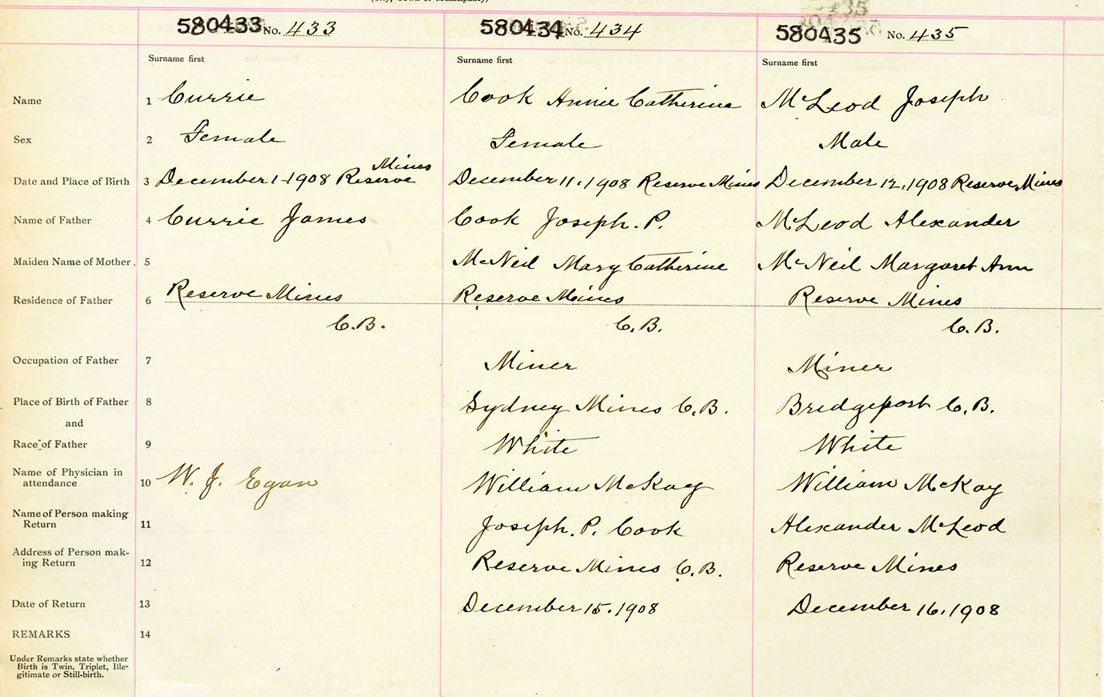 580433 No. 433 580434 No. 434 580435 No. 435
Surname first Surname first Surname first
Name 1 Currie Cook Annie Catherine McLeod Joseph
Sex 2 Female Female Male
Date and Place of Birth 3 December 1-1908 Reserve Mines December 11, 1908 Reserve Mines December 12, 1908 Reserve Mines
Name of Father 4 Currie James Cook Joseph. P. McLeod Alexander
Maiden Name of Mother. 5 McNeil Mary Catherine McNeil Margaret Ann
Residence of Father 6 Reserve Mines Reserve Mines Reserve Mines
C.B. C.B. C.B.
Occupation of Father 7 Miner Miner
Place of Birth of Father 8 Sydney Mines C.B. Bridgeport C.B.
and
Race of Father 9 White White
Name of Physician in
attendance 10 W. J. Egan William McKay William McKay
Name of Person making
Return 11 Joseph. P. Cook Alexander McLeod
Address of Person mak-
ing Return 12 Reserve Mines C.B. Reserve Mines
Date of Return 13 December 15, 1908 December 16, 1908
REMARKS 14
Under Remarks state whether
Birth is Twin, Triplet, Ille-
gitimate or Still-birth.